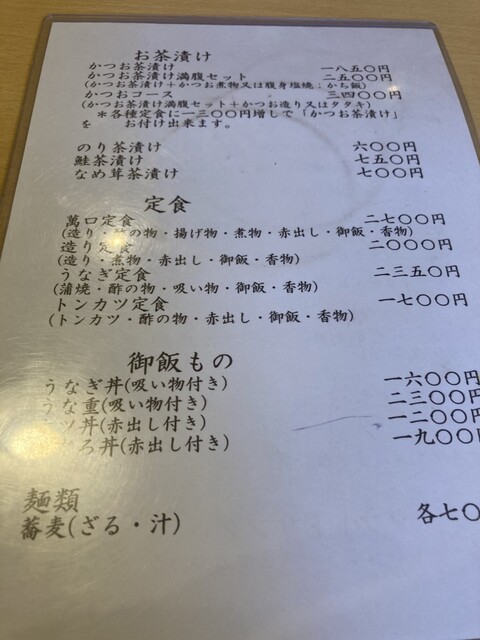 お茶漬け
かつお茶漬け 一八五〇円
かつお茶漬け満腹セット 二五〇〇円
(かつお茶漬け+かつお煮物又は腹身塩焼；かち飯)
かつおコース 三四〇〇円
(かつお茶漬け満腹セット+かつお造り又はタタキ)
＊各種定食に一三〇〇円増しで「かつお茶漬け」
を お付け出来ます。
のり茶漬け 六〇〇円
鮭茶漬け 七五〇円
なめ茸茶漬け 七〇〇円
定食
萬口定食 二七〇〇円
(造り・酢の物・揚げ物・煮物・赤出し・御飯・香物)
造り定食 二〇〇〇円
(造り・煮物・赤出し・御飯・香物)
うなぎ定食 二三五〇円
(蒲焼・酢の物・吸い物・御飯・香物)
トンカツ定食 一七〇〇円
(トンカツ・酢の物・赤出し・御飯・香物)
御飯もの
うなぎ丼(吸い物付き) 一六〇〇円
うな重(吸い物付き) 二三〇〇円
ツ丼(赤出し付き) 一二〇〇円
ろ丼(赤出し付き) 一九〇〇円
麺類
蕎麦(ざる・汁) 各七〇